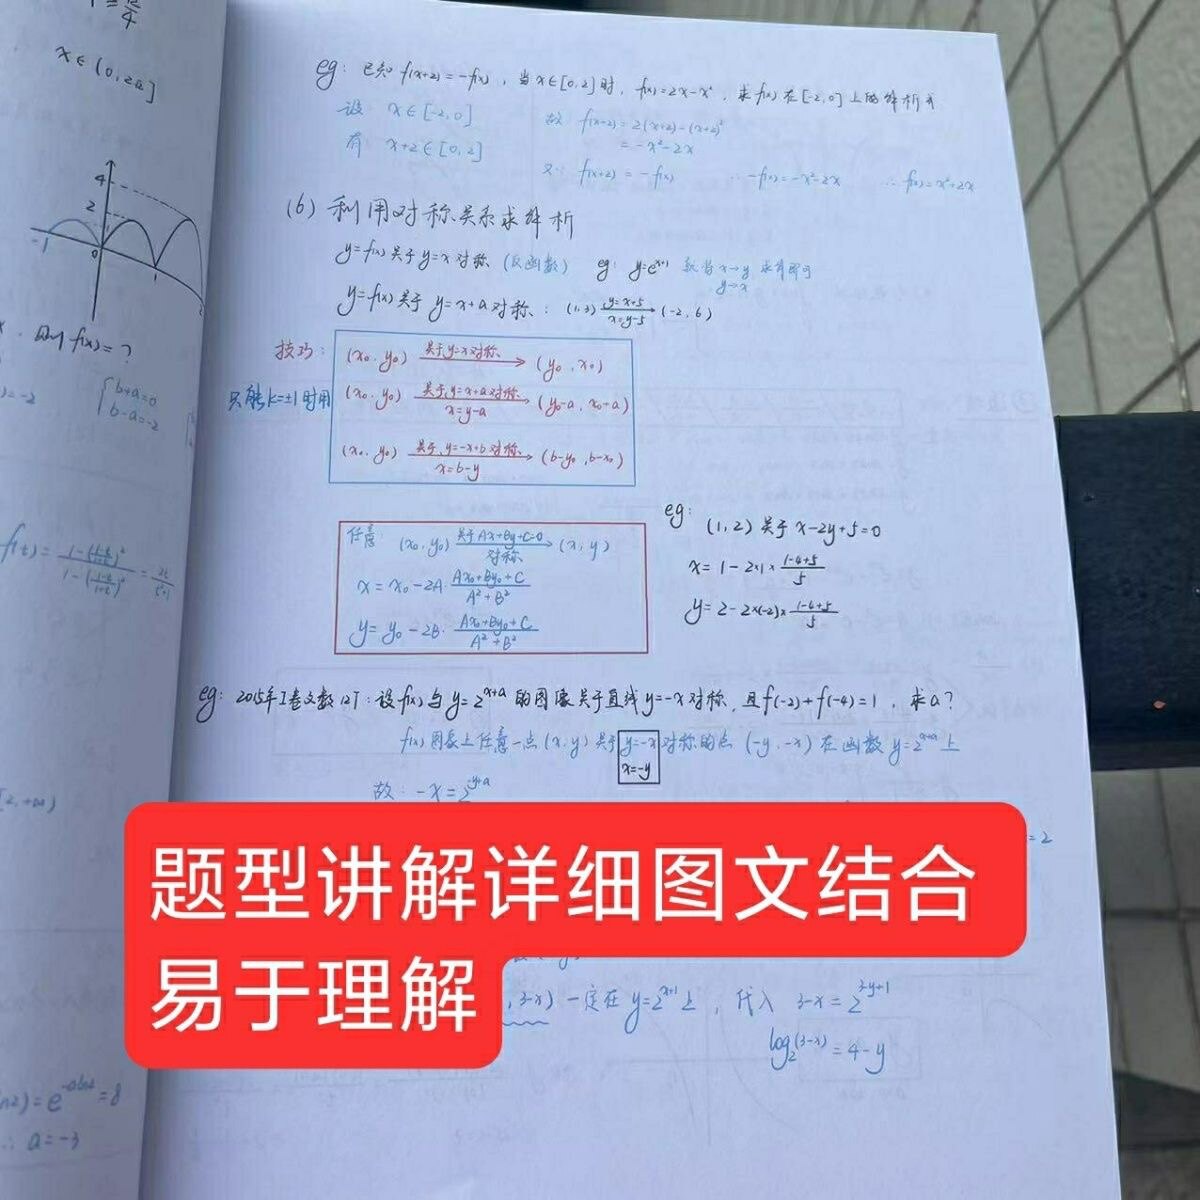 x∈(0,2π]
4
2
-1
0
1
2
则 f(x)=?
b+a=0
b-a=-2
)=-2
[2,+∞)
=8
∴ a=-3
eg: 已知 f(x+2)=-f(x), 当 x∈[0,2]时, f(x)=2x-x², 求 f(x) 在[-2,0]上的解析式
设 x∈[-2,0]
有 x+2∈[0,2]
故 f(x+2)=2(x+2)-(x+2)²
=-x²-2x
又∵ f(x+2)=-f(x) ∴ -f(x)=-x²-2x ∴ f(x)=x²+2x
(6) 利用对称关系求解析
y=f(x)关于y=x对称 (反函数) eg: y=e^(x+1) 就当 x→y 求解即可
y→x
y=f(x)关于 y=x+a对称: (1,3) y=x+5 → (-2,6)
x=y-5
技巧:
只能k=±1时用
(x₀,y₀) 关于y=x对称 → (y₀,x₀)
(x₀,y₀) 关于y=x+a对称 → (y₀-a,x₀+a)
x=y-a
(x₀,y₀) 关于y=-x+b对称 → (b-y₀,b-x₀)
x=b-y
任意: (x₀,y₀) 关于Ax+By+C=0 → (x,y)
对称
x=x₀-2A·(Ax₀+By₀+C)/(A²+B²)
y=y₀-2B·(Ax₀+By₀+C)/(A²+B²)
eg: (1,2)关于x-2y+5=0
x=1-2×1×(1-4+5)/5
y=2-2×(-2)×(1-4+5)/5
eg: 2015年I卷文数12T: 设f(x)与y=2^(x+a)的图像关于直线y=-x对称, 且f(-2)+f(-4)=1, 求a?
f(x)图象上任意一点(x,y)关于y=-x对称的点(-y,-x)在函数y=2^(x+a)上
x=-y
故: -x=2^(-y+a)
=2
题型讲解详细图文结合
易于理解
,3-x) 一定在y=2^(x+1)上, 代入 3-x=2^(3-y+1)
log₂(3-x)=4-y